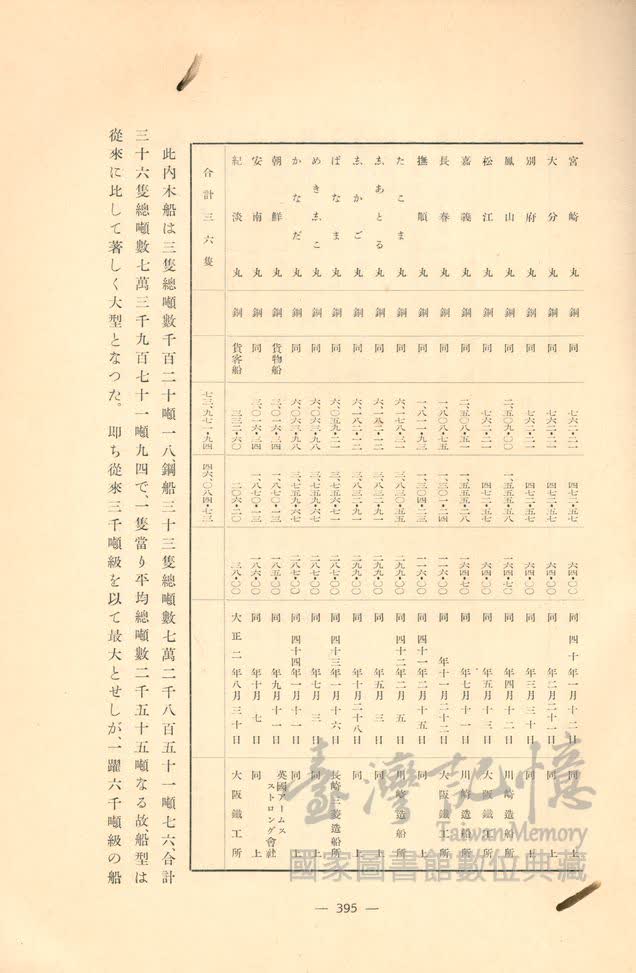 宮崎丸 鋼 同 七六二・二一 四七二・五七 六四・〇〇 同四十年一月十二日 同上
大分丸 鋼 同 七六二・二一 四七二・五七 六四・〇〇 同年二月二十一日 同上
別府丸 鋼 同 七六二・二一 四七二・五七 六四・〇〇 同年三月三十日 同上
鳳山丸 鋼 同 二、五〇九・〇〇 一、五五五・五八 一六四・七〇 同年四月十二日 川崎造船所
松江丸 鋼 同 七六二・二一 四七二・五七 六四・〇〇 同年五月十三日 大阪鐵工所
嘉義丸 鋼 同 二、五〇八・五一 一、五五五・二八 一六四・七〇 同年七月十一日 川崎造船所
長春丸 鋼 同 一、八〇八・七五 一一六・〇〇 同年十一月二十二日 大阪鐵工所
撫順丸 鋼 同 一、八一一・九三 一、三〇四・二三 一一六・〇〇 同四十一年二月十五日 同上
たこま丸 鋼 同 六、一七八・三一 三、八三〇・五五 二九九・〇〇 同四十二年二月五日 川崎造船所
しあとる丸 鋼 同 六、一八二・一二 三、八三二・九一 二九九・〇〇 同年五月三日 同上
しかご丸 鋼 同 六、一八二・一二 三、八三二・九一 二九九・〇〇 同年十月二十八日 同上
ぱなま丸 鋼 同 六、〇五九・二一 三、七五六・七一 二八七・〇〇 同四十三年一月十六日 長崎三菱造船所
めきしこ丸 鋼 同 六、〇六三・九八 三、七五九・六七 二八七・〇〇 同年七月三日 同上
かなだ丸 鋼 同 六、〇六三・九八 三、七五九・六七 二八七・〇〇 同四十四年一月十一日 同上
朝鮮丸 鋼 貨物船 三、〇一六・三四 一、八七〇・一三 一八五・〇〇 同年九月十一日 英國アームストロング會社
安南丸 鋼 同 三、〇一六・三四 一、八七〇・一三 一八六・〇〇 同年十月七日 同上
紀淡丸 鋼 貨客船 三三二・六〇 二〇六・二〇 三八・〇〇 大正二年八月三十日 大阪鐵工所
合計三六隻 七三、九七一・九四 四六、〇八四・七三
此内木船は三隻總噸數千百二十噸一八、鋼船三十三隻總噸數七萬二千八百五十一噸七六、合計
三十六隻總噸數七萬三千九百七十一噸九四で、一隻當り平均總噸數二千五十五噸なる故、船型は
從來に比して著しく大型となつた。即ち從來三千噸級を以て最大とせしが、一躍六千噸級の船
— 395 —
臺灣記憶
Taiwan Memory
國家圖書館數位典藏